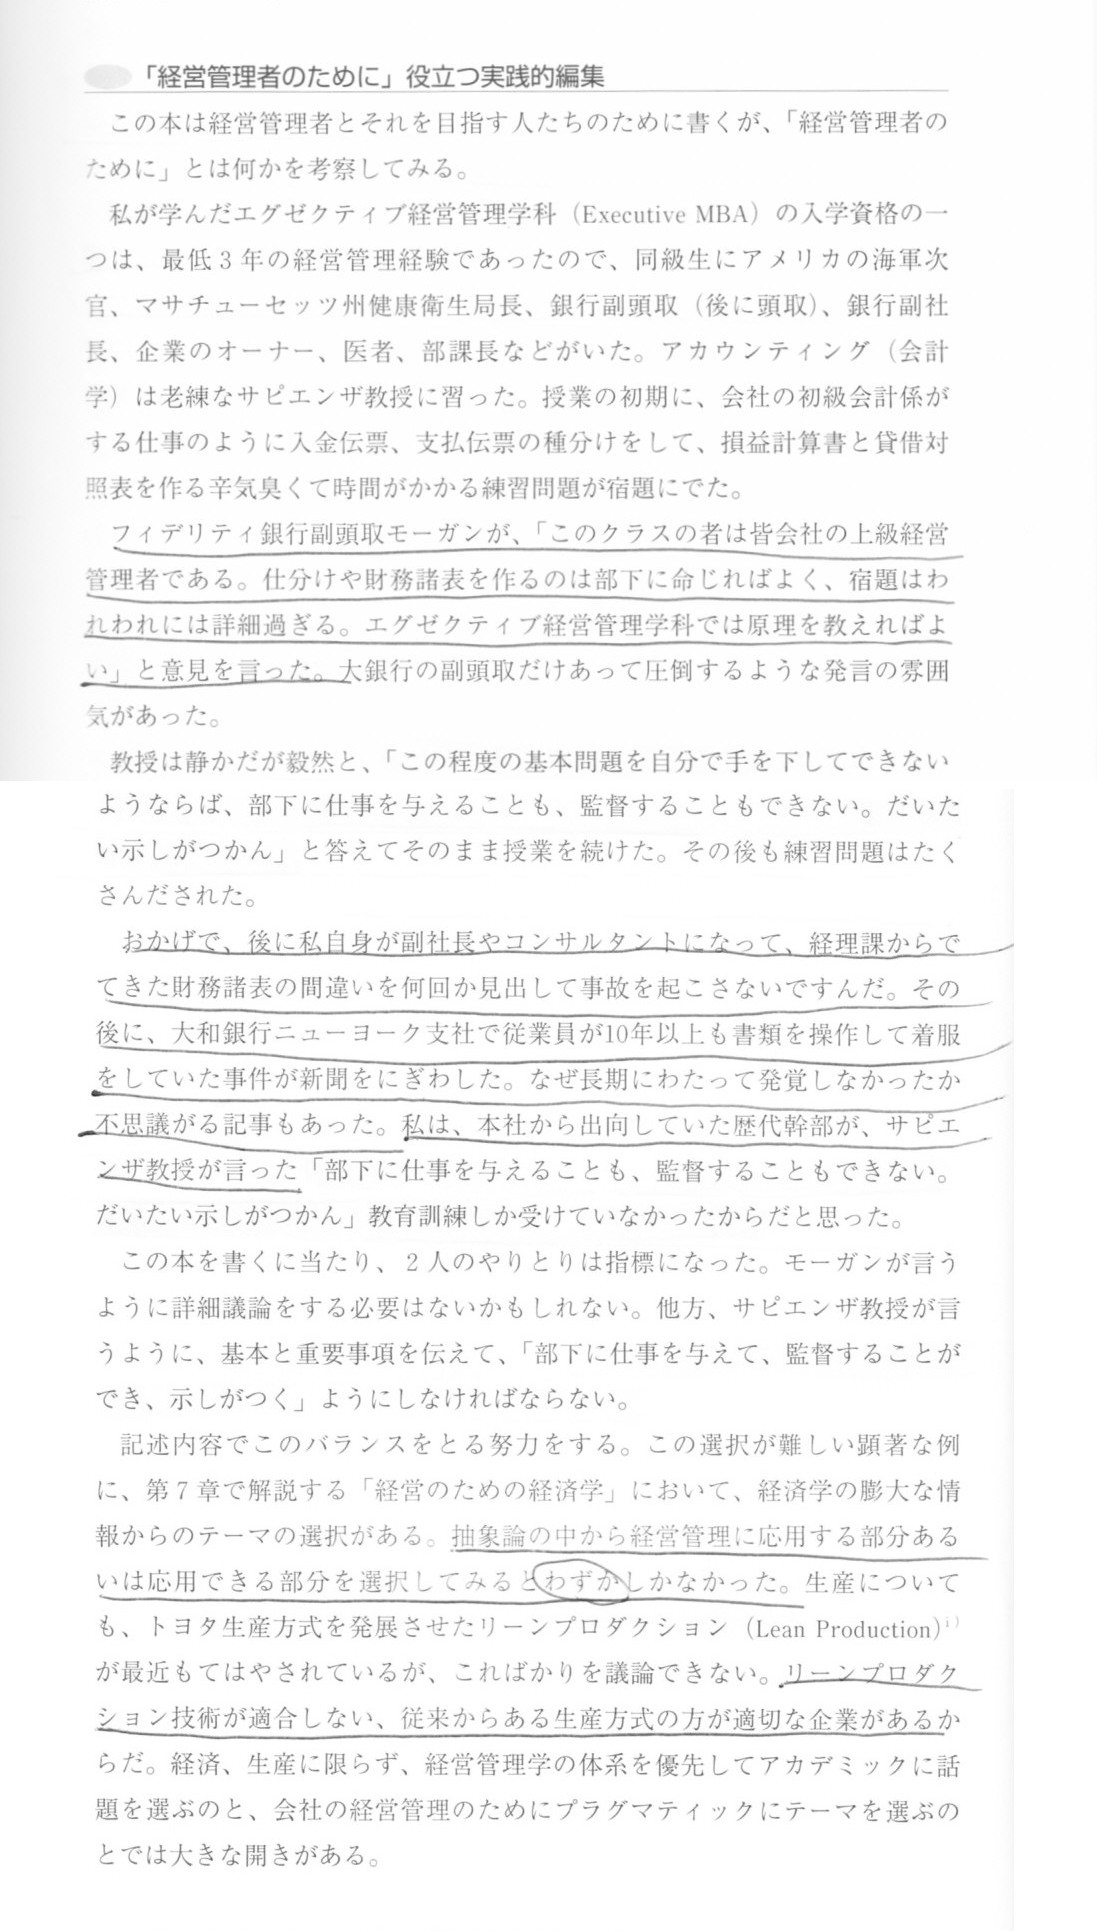 「経営管理者のために」役立つ実践的編集
この本は経営管理者とそれを目指す人たちのために書くが、「経営管理者の
ために」とは何かを考察してみる。
私が学んだエグゼクティブ経営管理学科（Executive MBA）の入学資格の一
つは、最低3年の経営管理経験であったので、同級生にアメリカの海軍次
官、マサチューセッツ州健康衛生局長、銀行副頭取（後に頭取）、銀行副社
長、企業のオーナー、医者、部課長などがいた。アカウンティング（会計
学）は老練なサピエンザ教授に習った。授業の初期に、会社の初級会計係が
する仕事のように入金伝票、支払伝票の種分けをして、損益計算書と貸借対
照表を作る辛気臭くて時間がかかる練習問題が宿題にでた。
フィデリティ銀行副頭取モーガンが、「このクラスの者は皆会社の上級経営
管理者である。仕分けや財務諸表を作るのは部下に命じればよく、宿題はわ
れわれには詳細過ぎる。エグゼクティブ経営管理学科では原理を教えればよ
い」と意見を言った。大銀行の副頭取だけあって圧倒するような発言の雰囲
気があった。
教授は静かだが毅然と、「この程度の基本問題を自分で手を下してできない
ようならば、部下に仕事を与えることも、監督することもできない。だいた
い示しがつかん」と答えてそのまま授業を続けた。その後も練習問題はたく
さんだされた。
おかげで、後に私自身が副社長やコンサルタントになって、経理課からで
てきた財務諸表の間違いを何回か見出して事故を起こさないですんだ。その
後に、大和銀行ニューヨーク支社で従業員が10年以上も書類を操作して着服
をしていた事件が新聞をにぎわした。なぜ長期にわたって発覚しなかったか
不思議がる記事もあった。私は、本社から出向していた歴代幹部が、サピエ
ンザ教授が言った「部下に仕事を与えることも、監督することもできない。
だいたい示しがつかん」教育訓練しか受けていなかったからだと思った。
この本を書くに当たり、2人のやりとりは指標になった。モーガンが言う
ように詳細議論をする必要はないかもしれない。他方、サピエンザ教授が言
うように、基本と重要事項を伝えて、「部下に仕事を与えて、監督することが
でき、示しがつく」ようにしなければならない。
記述内容でこのバランスをとる努力をする。この選択が難しい顕著な例
に、第7章で解説する「経営のための経済学」において、経済学の膨大な情
報からのテーマの選択がある。抽象論の中から経営管理に応用する部分ある
いは応用できる部分を選択してみるとわずかしかなかった。生産について
も、トヨタ生産方式を発展させたリーンプロダクション（Lean Production）i）
が最近もてはやされているが、こればかりを議論できない。リーンプロダク
ション技術が適合しない、従来からある生産方式の方が適切な企業があるか
らだ。経済、生産に限らず、経営管理学の体系を優先してアカデミックに話
題を選ぶのと、会社の経営管理のためにプラグマティックにテーマを選ぶの
とでは大きな開きがある。